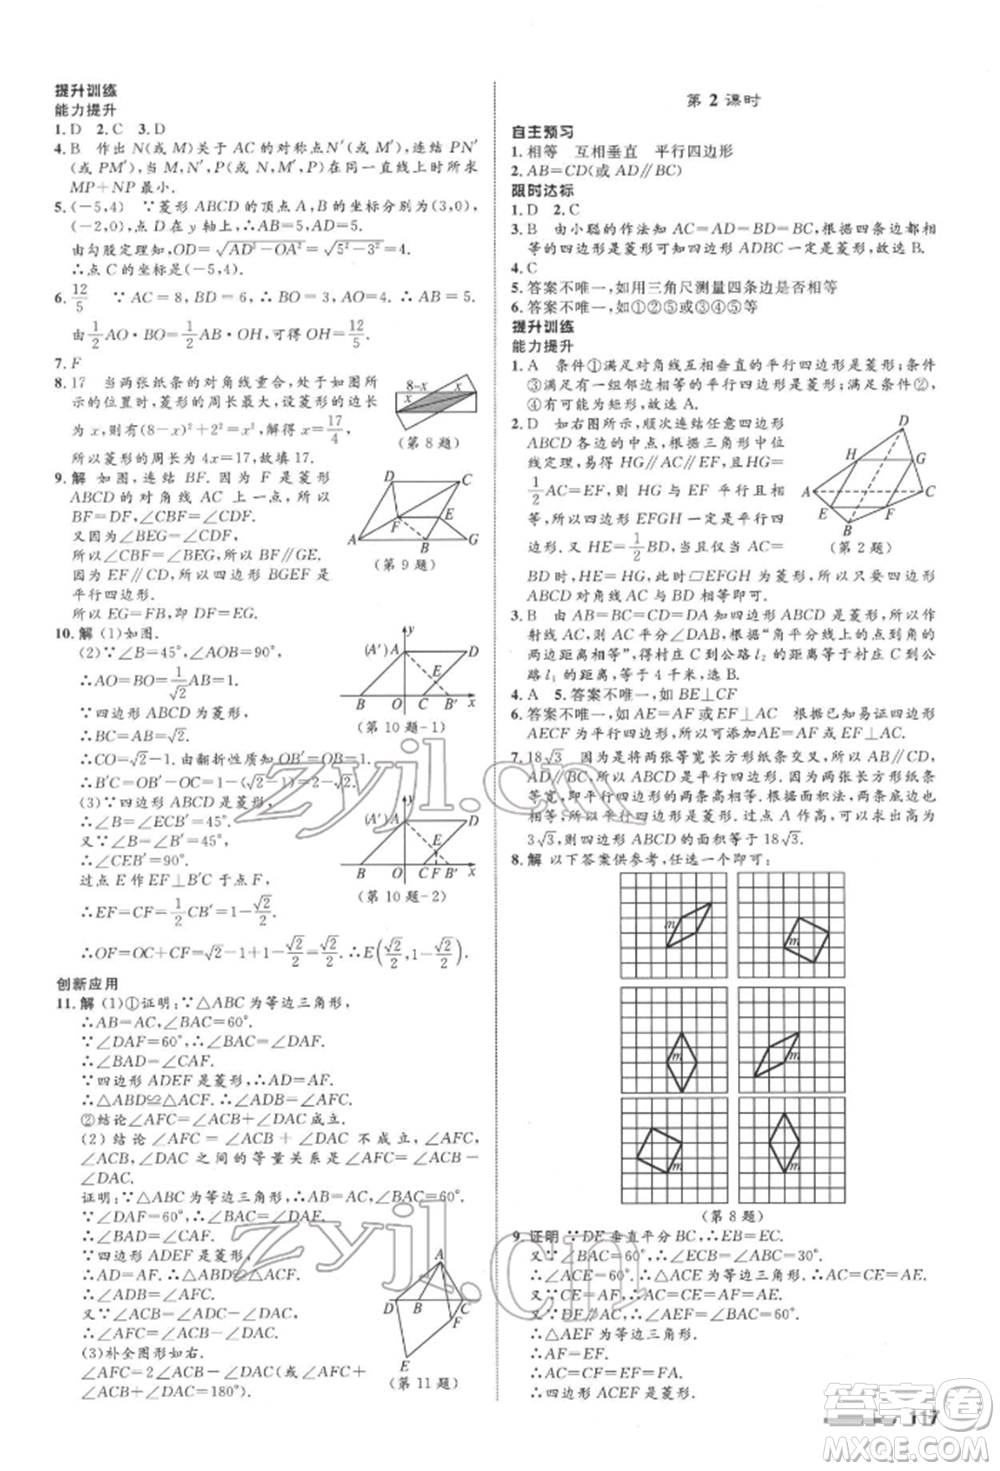 提升训练
能力提升
1. D 2. C 3. D
4. B 作出 N(或 M)关于 AC 的对称点 N′(或 M′),连结 PN′
(或 PM′),当 M,N′,P(或 N,M′,P)在同一直线上时,
MP+NP 最小.
5. (-5,4) ∵菱形 ABCD 的顶点 A,B 的坐标分别为(3,0),
(-2,0),点 D 在 y 轴上,∴AB=AD=5=CD,
由勾股定理知,OD=√(AD²-OA²)=√(5²-3²)=4.
∴点 C 的坐标是(-5,4).
6. 12/5 ∵AC=8,BD=6,∴BO=3,AO=4,∴AB=5.
由 1/2 AO·BO=1/2 AB·OH,可得 OH=12/5.
7. F
8. 17 当两张纸条的对角线重合,处于如图所
示的位置时,菱形的周长最大,设菱形的边长
为 x,则有(8-x)²+2²=x²,解得 x=17/4,
所以菱形的周长为 4x=17,故填 17.
8-x x
x
(第 8 题)
9. 解 如图,连结 BF. 因为 F 是菱形
ABCD 的对角线 AC 上一点,所以
BF=DF,∠CBF=∠CDF.
又因为∠BEG=∠CDF,
所以∠CBF=∠BEG,所以 BF∥GE.
因为 EF∥CD,所以四边形 BGEF 是
平行四边形.
所以 EG=FB,即 DF=EG.
D C F E A B G
(第 9 题)
10. 解 (1)如图.
(2)∵∠B=45°,∠AOB=90°,
∴AO=BO=1/√2 AB=1.
∵四边形 ABCD 为菱形,
∴BC=AB=√2.
∴CO=√2-1. 由翻折性质知 OB′=OB=1.
∴B′C=OB′-OC=1-(√2-1)=2-√2.
(A′) y A D E B O C B′ x
(第 10 题-1)
(3)∵四边形 ABCD 为菱形,
∴∠B=∠B′=45°.
又∵∠B′CE=∠B=45°,
∴∠CEB′=90°.
过点 E 作 EF⊥B′C 于点 F,
∴EF=CF=1/2 CB′=1-√2/2.
∴OF=OC+CF=√2-1+1-√2/2=√2/2,∴E(√2/2,1-√2/2).
(A′) y A D E B O C F B′ x
(第 10 题-2)
创新应用
11. 解 (1)①证明:∵△ABC 为等边三角形,
∴AB=AC,∠BAC=60°.
∵∠DAF=60°,∴∠BAC=∠DAF.
∴∠BAD=∠CAF.
∵四边形 ADEF 是菱形,∴AD=AF.
∴△ABD≌△ACF. ∴∠ADB=∠AFC.
②结论∠AFC=∠ACB+∠DAC 成立.
(2)结论∠AFC=∠ACB+∠DAC 不成立,∠AFC,
∠ACB,∠DAC 之间的等量关系是∠AFC=∠ACB-
∠DAC.
证明:∵△ABC 为等边三角形,∴AB=AC,∠BAC=60°.
∵∠DAF=60°,∴∠BAC=∠DAF.
∴∠BAD=∠CAF.
∵四边形 ADEF 是菱形,
∴AD=AF. ∴△ABD≌△ACF.
∴∠ADC=∠AFC.
又∵∠ACB=∠ADC+∠DAC,
∴∠AFC=∠ACB-∠DAC.
(3)补全图形如右.
∠AFC=2∠ACB-∠DAC(或∠AFC+
∠DAC+∠ACB=180°).
A D B C F E
(第 11 题)
第 2 课时
自主预习
1. 相等 互相垂直 平行四边形
2. AB=CD(或 AD∥BC)
限时达标
1. D 2. C
3. B 由小聪的作法知 AC=AD=BD=BC,根据四条边都相
等的四边形是菱形可知四边形 ADBC 一定是菱形,故选 B.
4. C
5. 答案不唯一,如用三角尺测量四条边是否相等
6. 答案不唯一,如①②⑤或③④⑤等
提升训练
能力提升
1. A 条件①满足对角线互相垂直的平行四边形是菱形;条件
③满足有一组邻边相等的平行四边形是菱形;条件②,
④可判定为矩形,故选 A.
2. D 如右图所示,顺次连结任意四边形
ABCD 各边的中点,根据三角形中位
线定理,易得 AC∥HG∥EF,且 HG=
1/2 AC=EF,则 HG 与 EF 平行且相
等,所以四边形 EFGH 一定是平行四
边形. 又 HE=1/2 BD,当满足 AC=
BD 时,HE=HG,此时▱EFGH 为菱形,所以只要四边形
ABCD 对角线 AC=BD 即可.
D H G A C E F B
(第 2 题)
3. B 由 AB=BC=CD=DA 知四边形 ABCD 是菱形,所以作
射线 AC 则平分∠DAB,根据“角平分线上的点到角的两
边距离相等”,得村庄 C 到公路 l₂ 的距离等于村庄 C 到公
路 l₁ 的距离,等于 4 千米,故选 B.
4. A 5. 答案不唯一,如 BE⊥CF
6. 答案不唯一,如 AE=AF 或 EF⊥AC 由已知易证四边形
AECF 为平行四边形,所以可添加 AE=AF 或 EF⊥AC.
7. 18√3 因为是两张等宽长方形纸条交叉,所以 AB∥CD,
AD∥BC,所以 ABCD 是平行四边形. 因为两张长方形纸条
等宽,所以两条高相等. 根据面积法,两条底边也相等,所
以四边形 ABCD 是菱形. 过点 A 作高,可以求出高为
3√3,则四边形 ABCD 的面积等于 18√3.
8. 解 以下答案供参考,任选一个即可:
m m
m m
m m
(第 8 题)
9. 证明 ∵DE 垂直平分 BC,∴BE=CE.
又∵∠BAC=60°,∴∠ABC=30°.
∴∠ACE=60°. ∴AC=CE=AE.
又∵CE=AF,∴AC=CE=AF=AE.
又∵DF∥AC,∴∠AEF=∠CAE=60°.
∴△AEF 为等边三角形.
∴AC=CE=EF=FA.
∴四边形 ACEF 是菱形.
117
zyjl.cn
zyjl.cn
答案圈
MXQE.COM